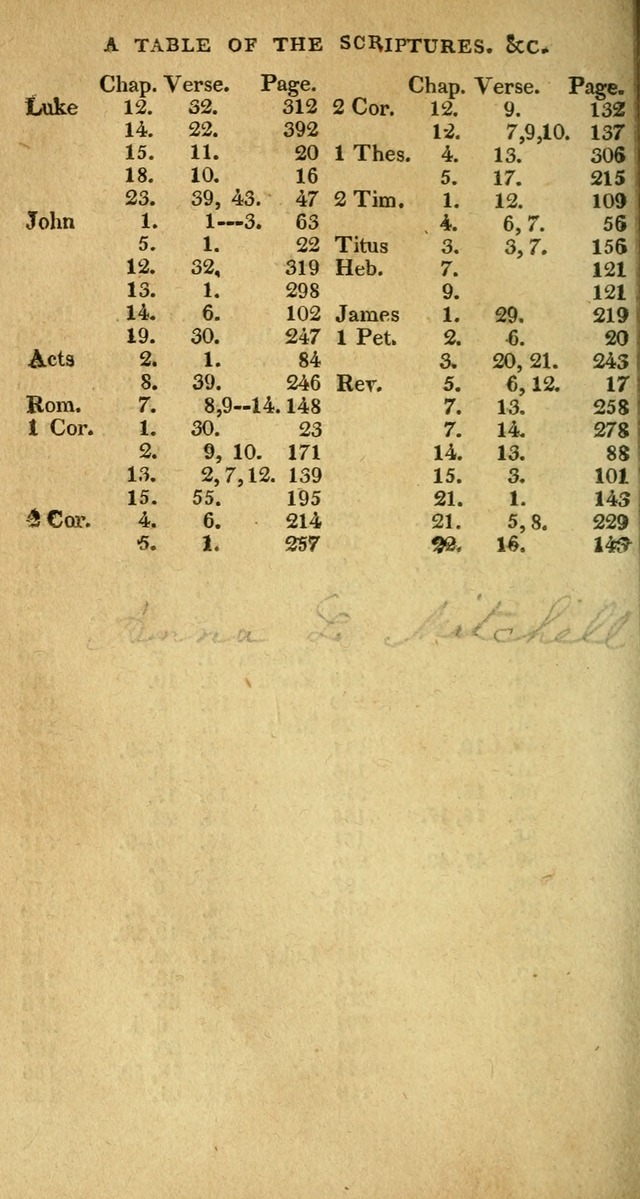 A TABLE OF THE SCRIPTURES. &C.
Chap. Verse. Page.
Luke 12. 32. 312
14. 22. 392
15. 11. 20
18. 10. 16
23. 39, 43. 47
John 1. 1---3. 63
5. 1. 22
12. 32, 319
13. 1. 298
14. 6. 102
19. 30. 247
Acts 2. 1. 84
8. 39. 246
Rom. 7. 8,9--14. 148
1 Cor. 1. 30. 23
2. 9, 10. 171
13. 2,7,12. 139
15. 55. 195
2 Cor. 4. 6. 214
5. 1. 257
Chap. Verse. Page.
2 Cor. 12. 9. 132
12. 7,9,10. 137
1 Thes. 4. 13. 306
5. 17. 215
2 Tim. 1. 12. 109
4. 6, 7. 56
Titus 3. 3, 7. 156
Heb. 7. 121
9. 121
James 1. 29. 219
1 Pet. 2. 6. 20
3. 20, 21. 243
Rev. 5. 6, 12. 17
7. 13. 258
7. 14. 278
14. 13. 88
15. 3. 101
21. 1. 143
21. 5, 8. 229
22. 16.
Anna L Mitchell